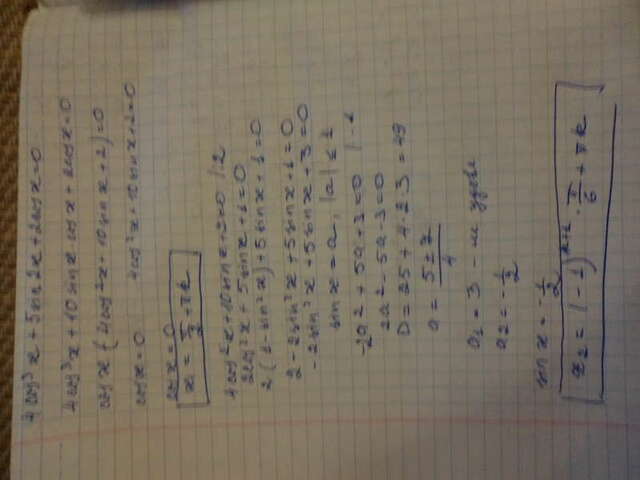 4cos³x + 5sin2x + 2cosx = 0
4cos³x + 10sinx·cosx + 2cosx = 0
cosx (4cos²x + 10sinx + 2) = 0
cosx = 0 4cos²x + 10sinx + 2 = 0
cosx = 0
x = π/2 + πk
4cos²x + 10sinx + 2 = 0 |2
2cos²x + 5sinx + 1 = 0
2(1 - sin²x) + 5sinx + 1 = 0
2 - 2sin²x + 5sinx + 1 = 0
-2sin²x + 5sinx + 3 = 0
sinx = a, |a| ≤ 1
-2a² + 5a + 3 = 0 | -1
2a² - 5a - 3 = 0
D = 25 + 4·2·3 = 49
a = (5 ± 7)/4
a₁ = 3 - не удовл
a₂ = -1/2
sinx = -1/2
x₂ = (-1)ᵏ⁺¹ · π/6 + πk